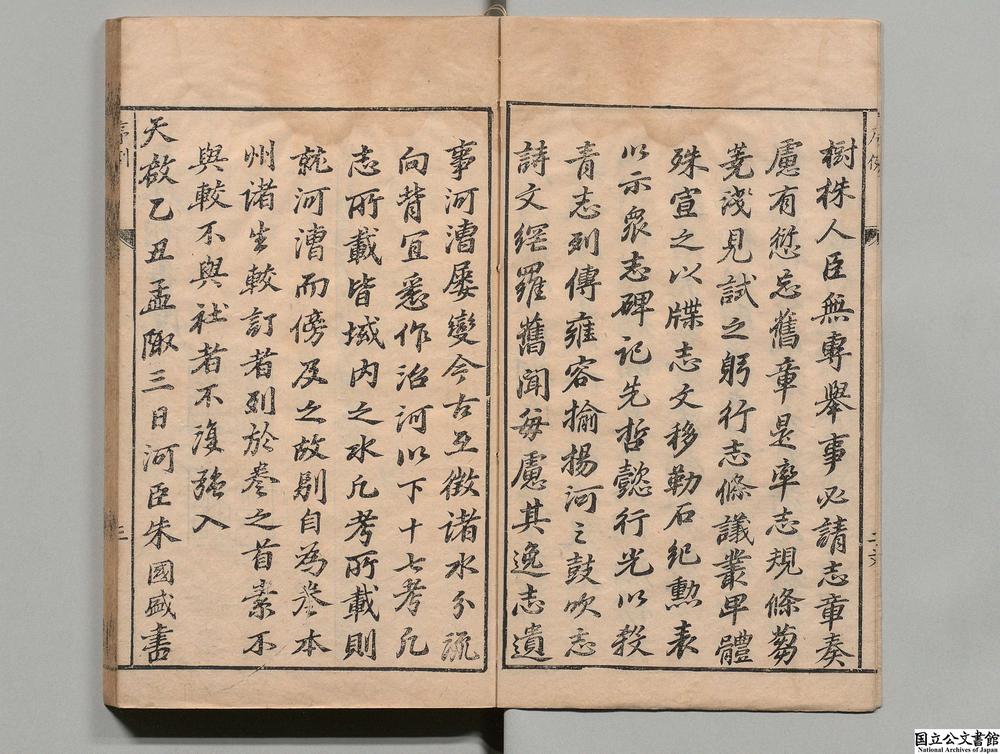 樹株人臣無專舉事必請志章奏
慮有愆忘舊章是率志規條芻
蕘淺見試之躬行志條議叢卑體
殊宣之以牒志文移勒石紀勲表
以示衆志碑記先哲懿行光以殺
青志列傳雍容揄揚河之鼓吹志
詩文網羅舊聞毎慮其逸志遺
事河漕屡變今古互徵諸水分流
向背宜悉作治河以下十七考凡
志所載皆域内之水凡考所載則
就河漕而傍及之故別自為卷本
州诸生較訂者列於卷之首素不
與較不與社者不復強入
天啟乙丑孟陬三日河臣朱國盛書
国立公文書館
National Archives of Japan